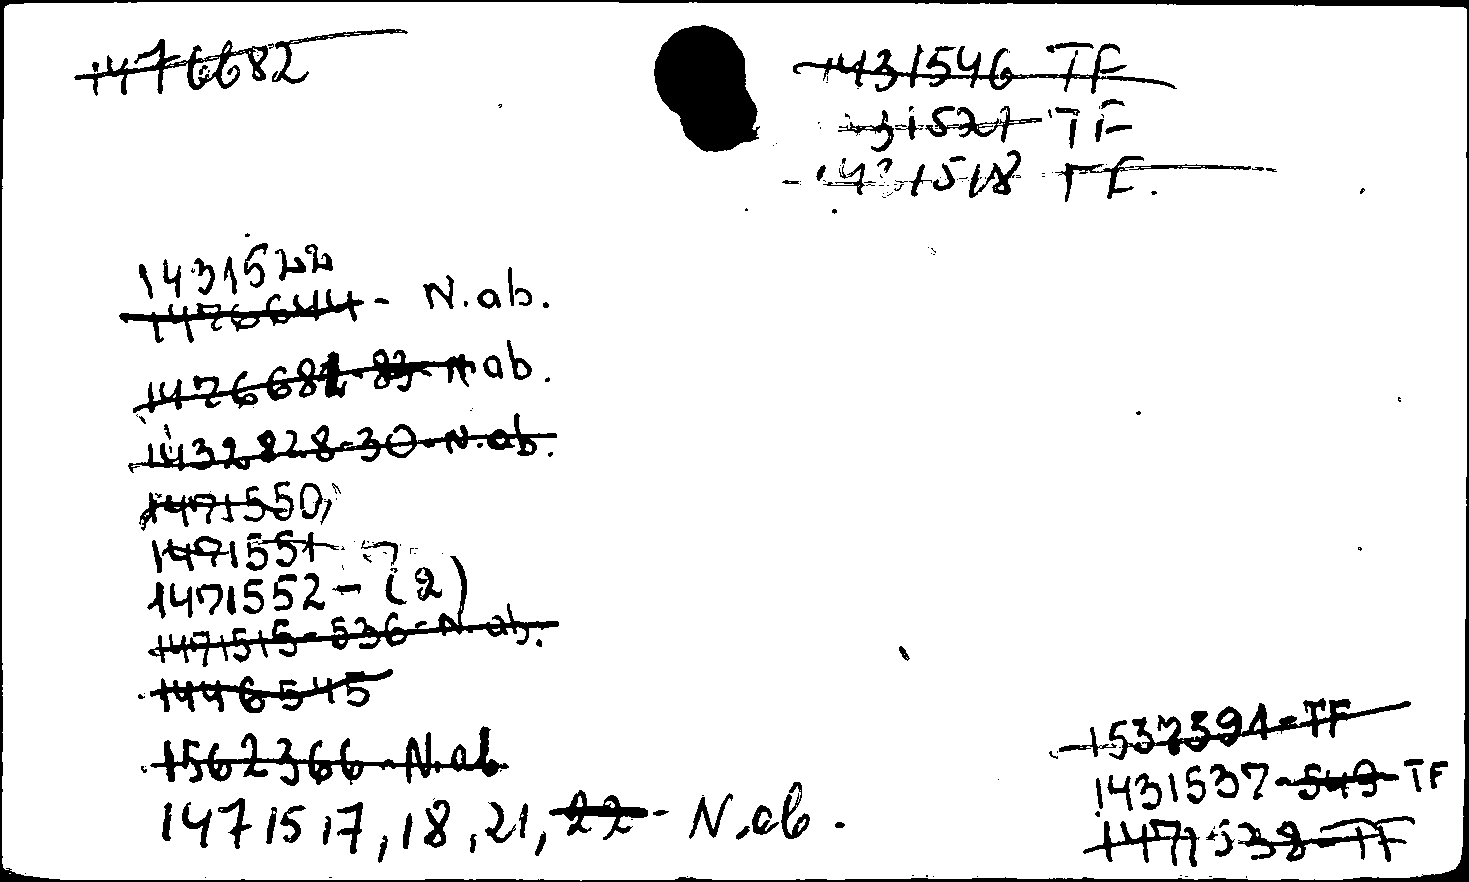 1476682
1431546 TF
431521 TF
1431518 TF.
1431522
1476644 - N.ab.
1476681-83-N ab.
1432828-30-N.ab.
1471550,
1471551
1471552 - (2)
1471515-536-N.ab.
1446545
1562366-N.ab
1471517, 18, 21, 22 - N.ab.
1532391-TF
1431537-549-TF
1471538-TF